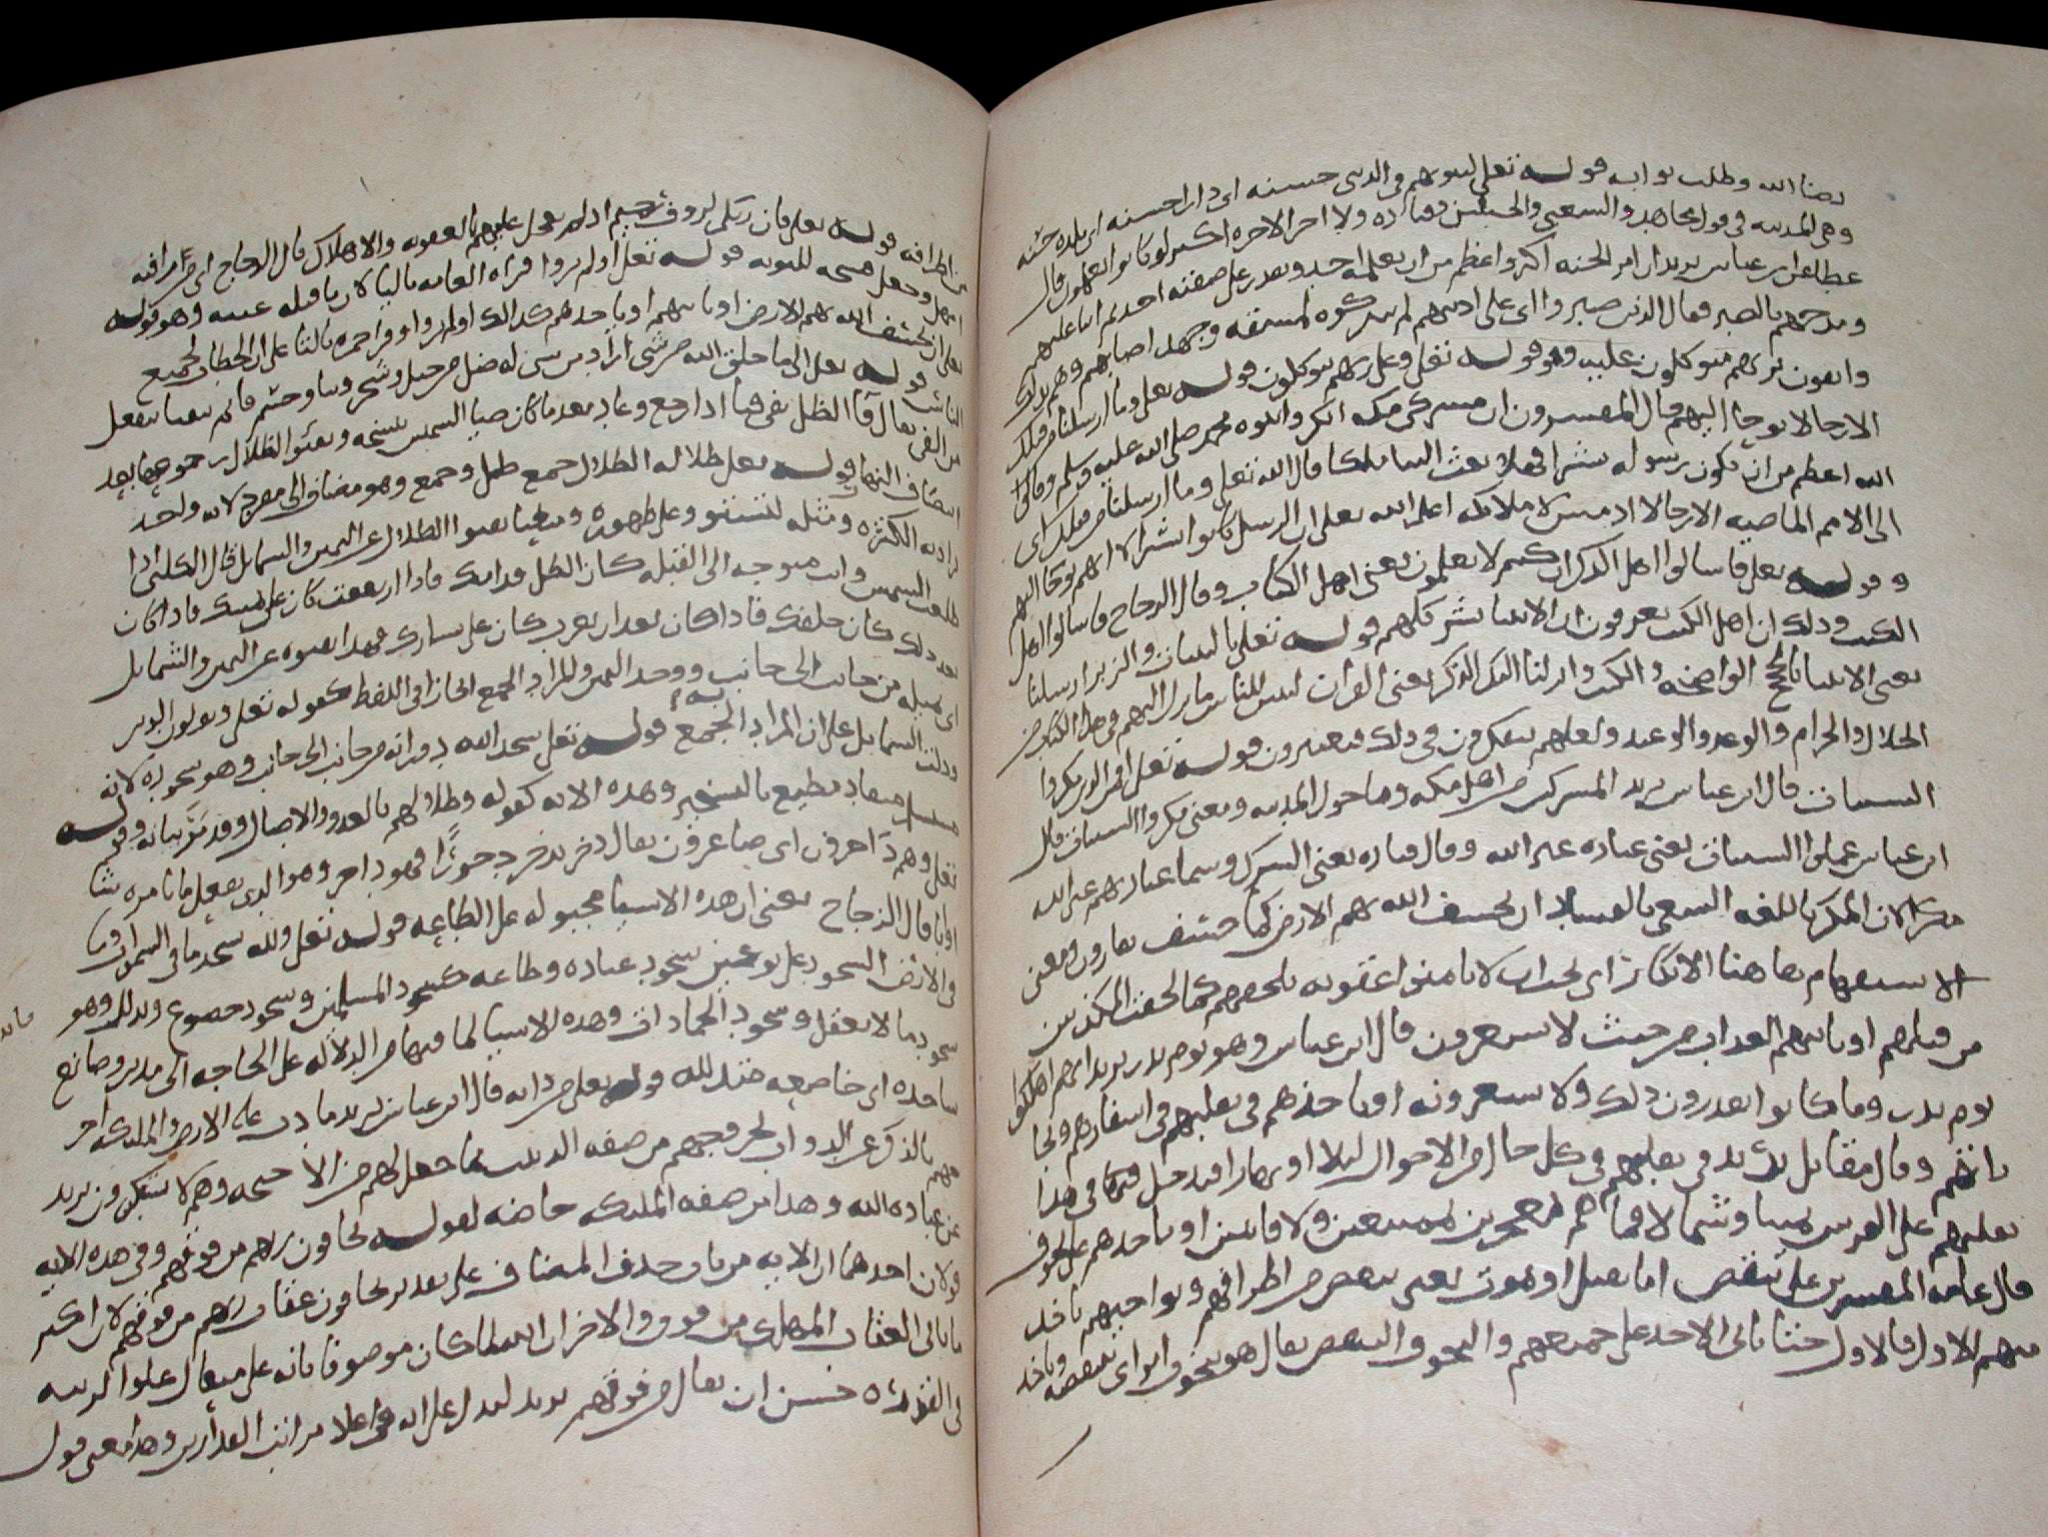 رضا الله وطلب ثوابه قوله تعلى لنبوينهم في الدنيا حسنه اي دارا حسنه اي بلده حسنه
وهى المدينه في قول مجاهد والشعبي والحسن وقتاده ولا اجر الاخره اكبر لو كانوا يعلمون قال
عطا عن ابن عباس يريد ان امر الجنه اكبر واعظم من ان يعلمه احد ويقدر على صفته احد ثم اثنا عليهم
ومدحهم بالصبر فقال الذين صبروا اي على اذيتهم لم يتركوه لمشقه وجهد اصابهم وهم بذلك
واثقون بربهم متوكلون عليه وهو قوله تعلى وعلى ربهم يتوكلون قوله تعلى وما ارسلنا من قبلك
الا رجالا نوحي اليهم قال المفسرون ان مشركى مكه انكروا نبوه محمد صلى الله عليه وسلم وقالوا
الله اعظم من ان يكون رسوله بشرا فهلا بعث الينا ملكا قال الله تعلى وما ارسلنا من قبلك اي
الى الامم الماضيه الا رجالا ادميين لا ملائكه اعلم الله تعلى ان الرسل كانوا بشرا الا انهم يوحا اليهم
وقوله تعلى فاسالوا اهل الذكر ان كنتم لا تعلمون يعنى اهل الكتاب وقال الزجاج فاسالوا اهل
الكتب وذلك ان اهل الكتب يعرفون ان الانبيا بشر كلهم قوله تعلى بالبينات والزبر ارسلنا
يعنى الانبيا بالحجج الواضحه والكتب وانزلنا اليك الذكر يعنى القرآن لتبين للناس ما نزل اليهم في هذا الكتاب من
الحلال والحرام والوعد والوعيد ولعلهم يتفكرون في ذلك فيعتبرون قوله تعلى افامن الذين مكروا
السيئات قال ابن عباس يريد المشركين من اهل مكه وما حول المدينه ومعنى مكروا السيئات قال
ابن عباس عملوا السيئات يعنى عباده غير الله وقال قتاده يعنى الشرك وسما عبادتهم غير الله
مكرا لان المكر في اللغه السعى بالفساد ان يخسف الله بهم الارض كما خسف بقارون ومعنى
الاستفهام ها هنا الانكار اي يجب ان لا يامنوا عقوبه تلحقهم كما لحقت المكذبين
من قبلهم او ياتيهم العذاب من حيث لا يشعرون قال ابن عباس وهو يوم بدر يريد انهم اهلكوا
يوم بدر وما كانوا يقدرون ذلك ولا يشعرونه او ياخذهم في تقلبهم في اسفارهم وتجا
راتهم وقال مقاتل يريد في تقلبهم في كل حال من الاحوال ليلا او نهارا فيدخل في هذا
تقلبهم على الفرش يمينا وشمالا فما هم بمعجزين بممتنعين ولا فايتين او ياخذهم على تخوف
قال عامه المفسرين على تنقص اما بقتل او بموت يعنى ينقص من اطرافهم ونواحيهم ياخذ
منهم الاول فالاول حتى ياتى الاخذ على جميعهم والتخوف التنقص يقال هو يتخوف المال اي تنقصه وياخذ
من اطرافه قوله تعلى فان ربكم لروف رحيم اذ لم يعجل عليهم بالعقوبه والاهلاك قال الزجاج اي من رافته
امهل وجعل فسحه للتوبه قوله تعلى اولم يروا قراه العامه باليا لان ما قبله غيبه وهو قوله
تعلى ان يخسف الله بهم الارض او ياتيهم او ياخذهم كذلك اولم يروا وقرا حمزه بالتا على ان الخطاب لجميع
الناس قوله تعلى الى ما خلق الله من شى اراد من شى له ظل من جبل وشجر وبنا وجسم قايم يتفيا يتفعل
من الفى يقال فا الظل يفى فيا اذا رجع وعاد بعد ما كان ضيا الشمس نسخه وتفيؤ الظلال رجوعها بعد
انتصاف النهار قوله تعلى ظلاله الظلال جمع ظل وجمع وهو مضاف الى مفرد لانه واحد
يراد به الكثره ومثله لتستووا على ظهوره ومعنى تفيوا الظلال عن اليمين والشمايل قال الكلبى اذا
طلعت الشمس وانت متوجه الى القبله كان الظل قدامك فاذا ارتفعت كان عن يمينك فاذا كان
بعد ذلك كان خلفك فاذا كان بعد ان تغرب كان على يسارك فهذا تفيوه عن اليمين والشمايل
اي ميله من جانب الى جانب ووحد اليمين والمراد به الجمع ايجازا في اللفظ كقوله تعلى ويولون الدبر
ودلت الشمايل على ان المراد الجمع قوله تعلى سجدا لله دورانه من جانب الى جانب وهو سجوده لانه
منقاد مطيع بالتسخير وهذه الايه كقوله وظلالهم بالغدو والاصال وقد مر بيانه وقوله
تعلى وهم داخرون اي صاغرون يقال دخر يدخر دخورا فهو داخر وهو الذى يفعل ما تامره شا
او ابا قال الزجاج يعنى ان هذه الاشيا مجبوله على الطاعه قوله تعلى ولله يسجد ما في السموات وما
في الارض السجود على نوعين سجود عباده وطاعه كسجود المسلمين وسجود خضوع وتذلل وهو
سجود ما لا يعقل وسجود الجمادات وهذه الاشيا لما فيها من الدلاله على الحاجه الى مدبر وصانع
ساجده اي خاضعه متذلله قوله تعلى من دابه قال ابن عباس يريد ما دب على الارض والمليكه اخر
جهم بالذكر عن الدواب لخروجهم من صفه الدبيب بما جعل لهم من الاجنحه وهم لا يستكبرون يريد
عن عباده الله وهذا من صفه المليكه خاصه لقوله يخافون ربهم من فوقهم وفي هذه الايه
قولان احدهما ان الايه من باب حذف المضاف على تقدير يخافون عقاب ربهم من فوقهم لان اكثر
ما ياتى العقاب المهلك من فوق والاخر ان الله لما كان موصوفا بانه على متعال علوا لرتبه
في القدره حسن ان يقال من فوقهم يريد ليدل على انه في اعلا مراتب القادرين وهذا معنى قول